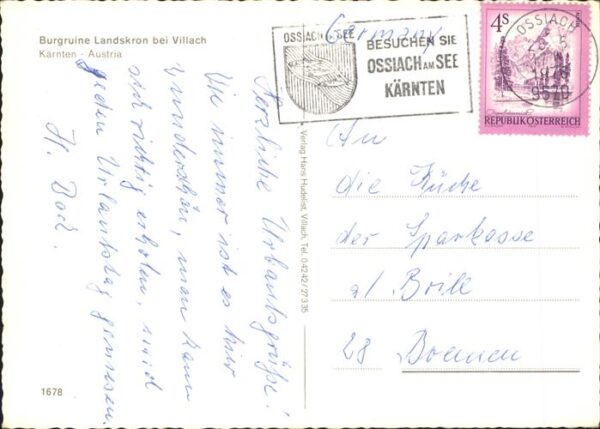 Burgruine Landskron bei Villach
Kärnten - Austria
Herzliche Urlaubsgrüße!
Wie immer ist es hier
wunderschön, man kann
sich richtig erholen, und
jeden Urlaubstag geniessen.
H. Bock.
1678
Verlag Hans Hudelist, Villach, Tel. 04242/27335
Germany
OSSIACH SEE
BESUCHEN SIE
OSSIACH AM SEE
KÄRNTEN
OSSIACH
9570
4S
REPUBLIK ÖSTERREICH
An
die Küche
der Sparkasse
a/ Brill
28 Bremen